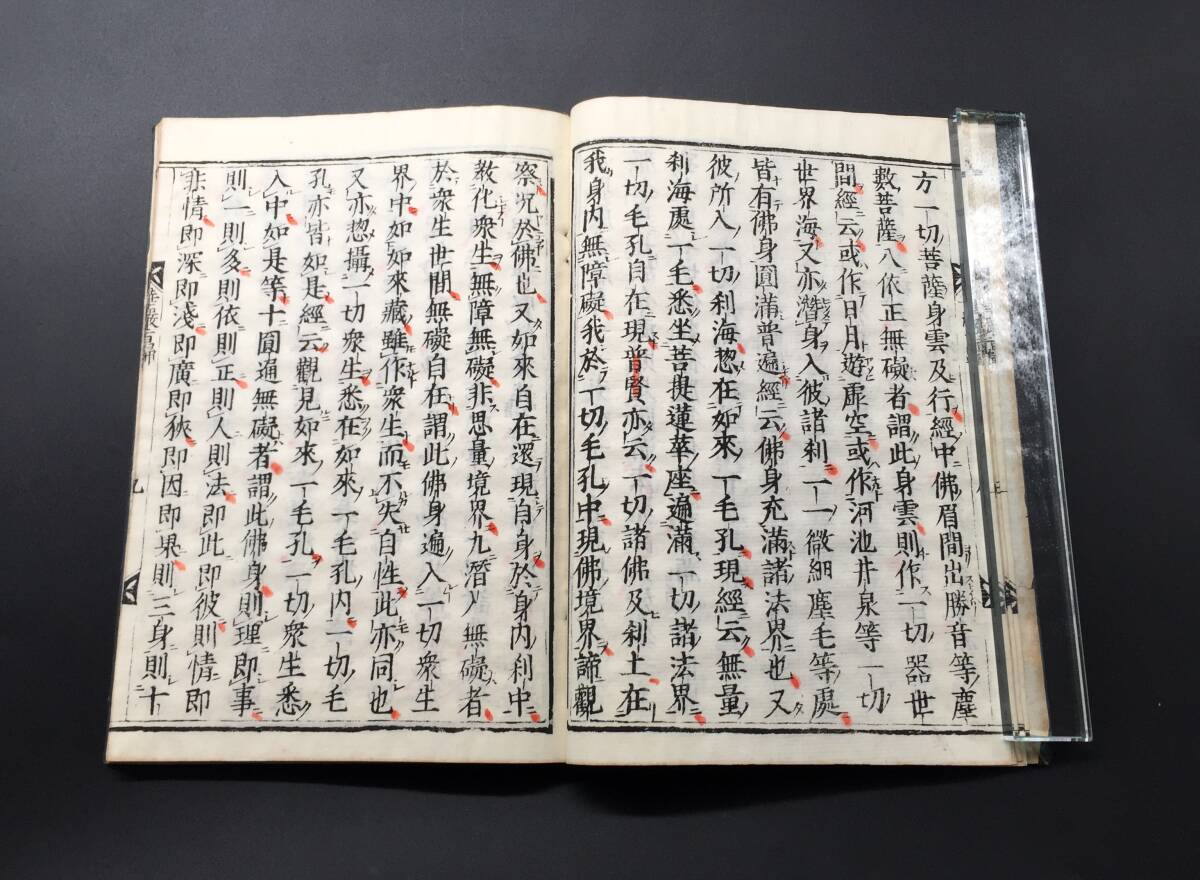 方一切菩薩身雲及行經中佛眉間出勝音等塵
數菩薩八依正無礙者謂此身雲則作一切器世
間經云或作日月遊虛空或作河池井泉等一切
世界海又亦潛身入彼諸刹一一微細塵毛等處
皆有佛身圓滿普遍經云佛身充滿諸法界也又
彼所入一切刹海惣在如來一毛孔現經云無量
刹海處一毛悉坐菩提蓮華座遍滿一切諸法界
一切毛孔自在現普賢亦云一切諸佛及刹土在
我身內無障礙我於一切毛孔中現佛境界諦觀
察況於佛也又如來自在還現自身於身內刹中
教化衆生無障無礙非思量境界九潛入無礙者
於衆生世間無礙自在謂此佛身遍入一切衆生
界中如如來藏雖作衆生而不失自性此亦同也
又亦惣攝一切衆生悉在如來一毛孔內一切毛
孔亦皆如是經云觀見如來一毛孔一切衆生悉
入中如是等十圓通無礙者謂此佛身則理即事
則一則多則依則正則人則法即此即彼則情即
非情即深即淺即廣即狹即因即果則三身則十
九